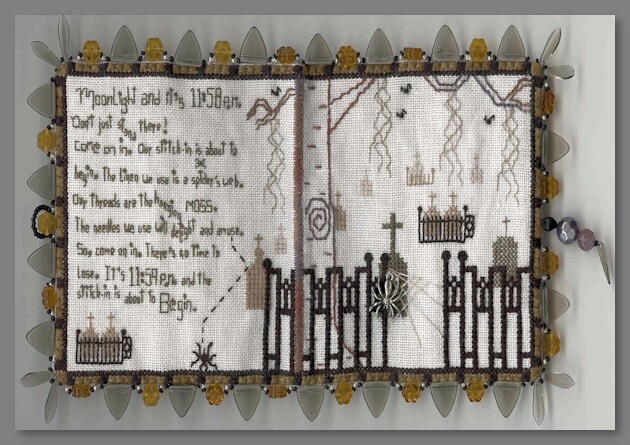 Moonlight and it's 11:58 p.m.
Don't just stand there!
Come on in. Our stitch-in is about to
begin. The linen we use is a spider's web.
Our threads are the hanging moss.
The needles we use will delight and amuse.
So, come on in. There's no time to
lose. It's 11:59 p.m. and the
stitch-in is about to Begin.